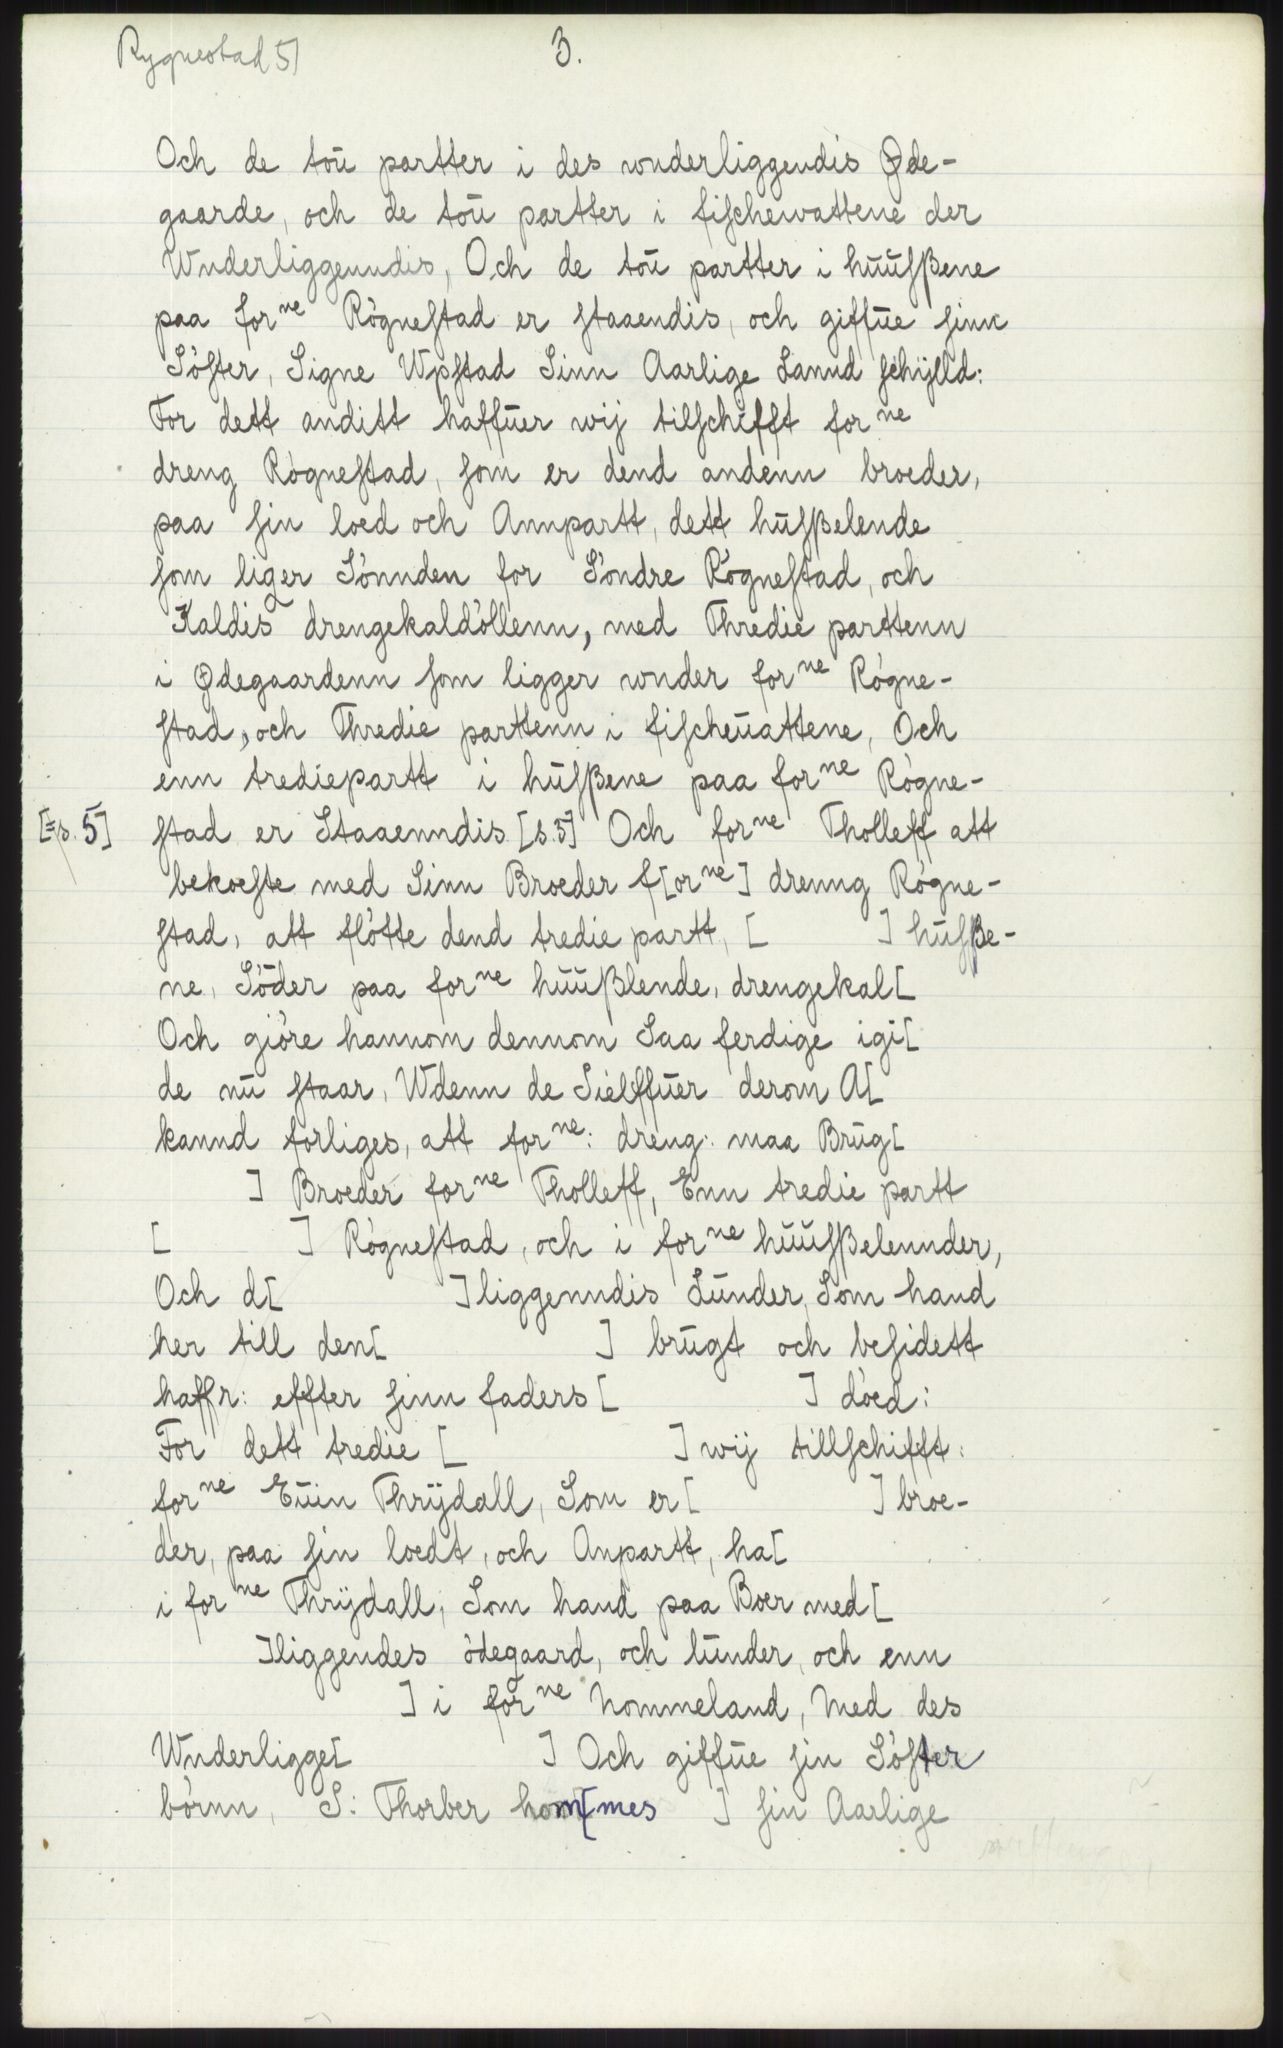 Rygnestad 5)
3.
Och de toū partter i des wnderliggendis Øde-
gaarde, och de toū partter i fischewattene der
Wnderliggenndis, Och de toū partter i hūūsßene
paa forⁿᵉ Rógnestad er staaendis, och giffūe sinn
Sóster, Signe Wpstad Sinn Aarlige Lannd schÿlld:
For dett anditt haffūer wij tilschifft forⁿᵉ
dreng Rógnestad, som er dend andenn broeder,
paa sin loed och Annpartt, dett hūsßelende
som liger Sónnden for Sóndre Rógnestad, och
Kaldis drengekaldóllenn, med Thredie parttenn
i Ødegaardenn som ligger wnder forⁿᵉ Rógne-
stad, och Thredie parttenn i fischeūattene, Och
enn trediepartt i hūsßene paa forⁿᵉ Rógne-
[= s. 5] stad er Staaenndis [s. 5] Och forⁿᵉ Tholleff att
bekoste med Sinn Broeder f[orⁿᵉ] drenng Rógne-
stad, att flótte dend tredie partt, [ ] hūsße-
ne, Sóder paa forⁿᵉ hūūßlende, drengekal[
Och gióre hannom dennom Saa ferdige igi[
de nū staar, Wdenn de Sielffūer derom A[
kannd forliges, att forⁿᵉ: dreng: maa Brūg[
] Broeder forⁿᵉ Tholleff, Enn tredie partt
[ ] Rógnestad, och i forⁿᵉ hūūsßelennder,
Och d[ ]liggenndis Lūnder, Som hand
her till den[ ] brūgt och besidett
haffr: effter sinn faders [ ] dóed:
For dett tredie [ ] wij tillschifft:
forⁿᵉ Eūin Thrÿdall, Som er [ ] broe-
der, paa sin loedt, och Anpartt, ha[
i forⁿᵉ Thrÿdall, Som hand paa Boer med [
]liggendes ódegaard, och lūnder, och enn
] i forⁿᵉ Nommeland, Med des
Wnderligge[ ] Och giffūe sin Sóster
bórnn, S: Thorber hom[mes ] sin Aarlige